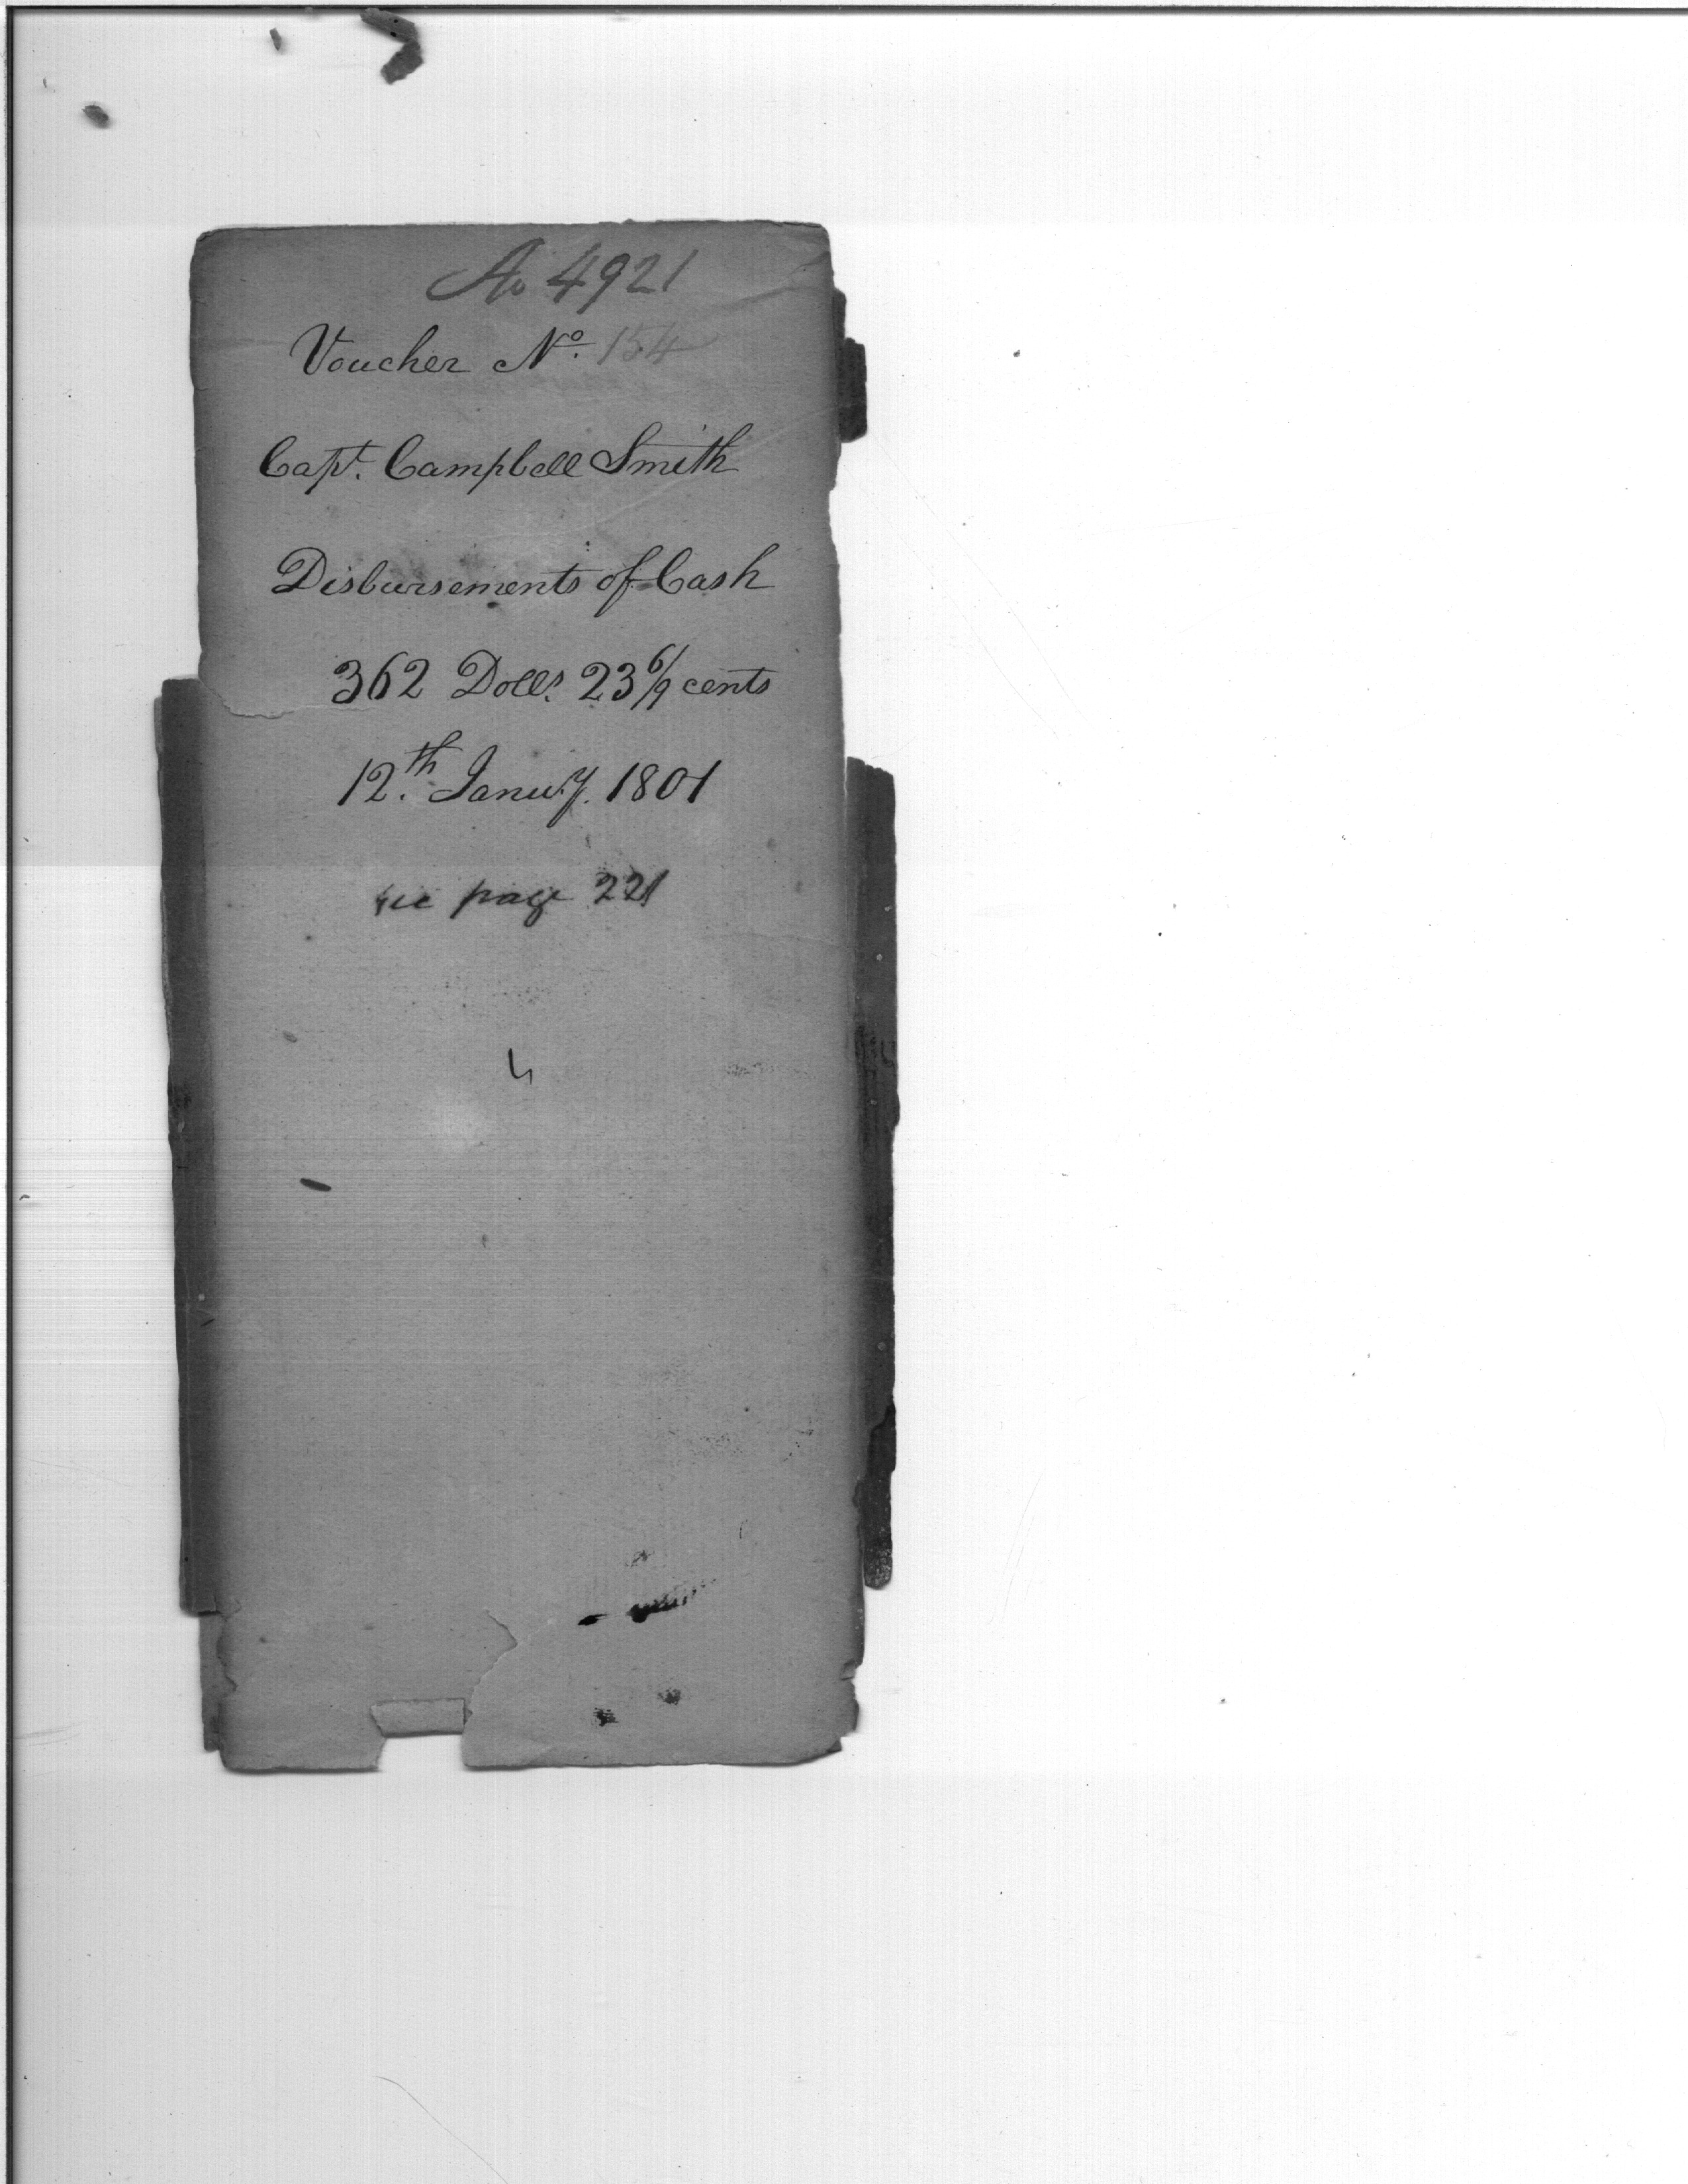 No 4921
Voucher No. 154
Capt. Campbell Smith
Disbursements of Cash
362 Dolls. 23 6/9 cents
12.th Janu.y. 1801
see page 221